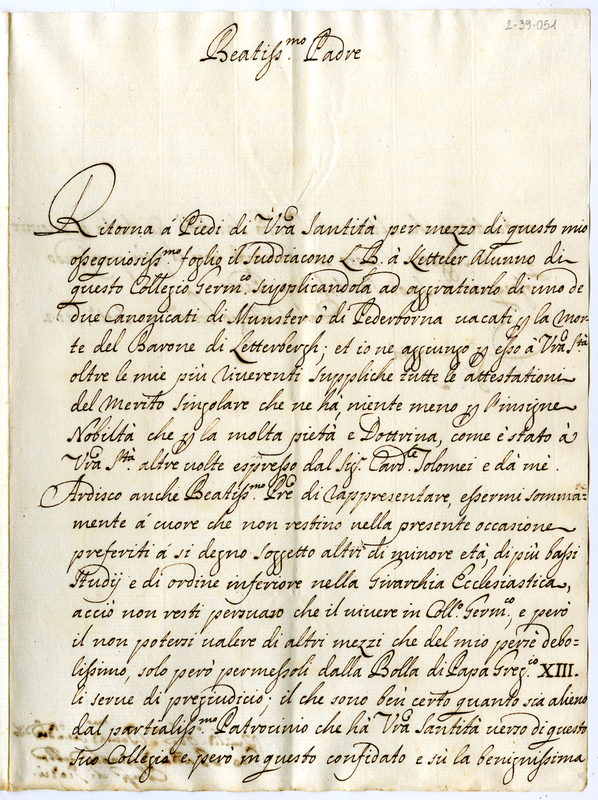 2-39-051
Beatiss.mo Padre
Ritorna á Piedi di Vra Santità per mezzo di questo mio
ossequiosiss.mo foglio il Suddiacono L. B. à Ketteler Alunno di
questo Collegio Germ.co supplicandola ad aggratiarlo di uno de
due Canonicati di Munster ô di Pederborna vacati p la mor-
te del Barone di Letterbergh; et io ne aggiungo p esso à Vra Stà
oltre le mie più riverenti suppliche tutte le attestationi
del Merito singolare che ne hà, niente meno p l'insigne
Nobiltà che p la molta pietà e Dottrina, come è stato à
Vra Stà altre volte espresso dal Sig. Card.le Tolomei e dà mè.
Ardisco anche Beatiss.mo Pre di rappresentare, essermi somma=
mente á cuore che non restino nella presente occasione
preferiti á si degno soggetto altri di minore età, di più bassi
studij e di ordine inferiore nella Girarchia Ecclesiastica,
acciò non resti persuaso che il vivere in Coll.o Germ.co, e però
il non potersi valere di altri mezzi che del mio per sè debo-
lissimo, solo però permessoli dalla Bolla di Papa Greg.o XIII.
li serve di pregiudicio; il che sono ben certo quanto sia alieno
dal partialiss.mo Patrocinio che hà Vra Santità verso di questo
suo Collegio e però in questo confidato e sù la benignissima